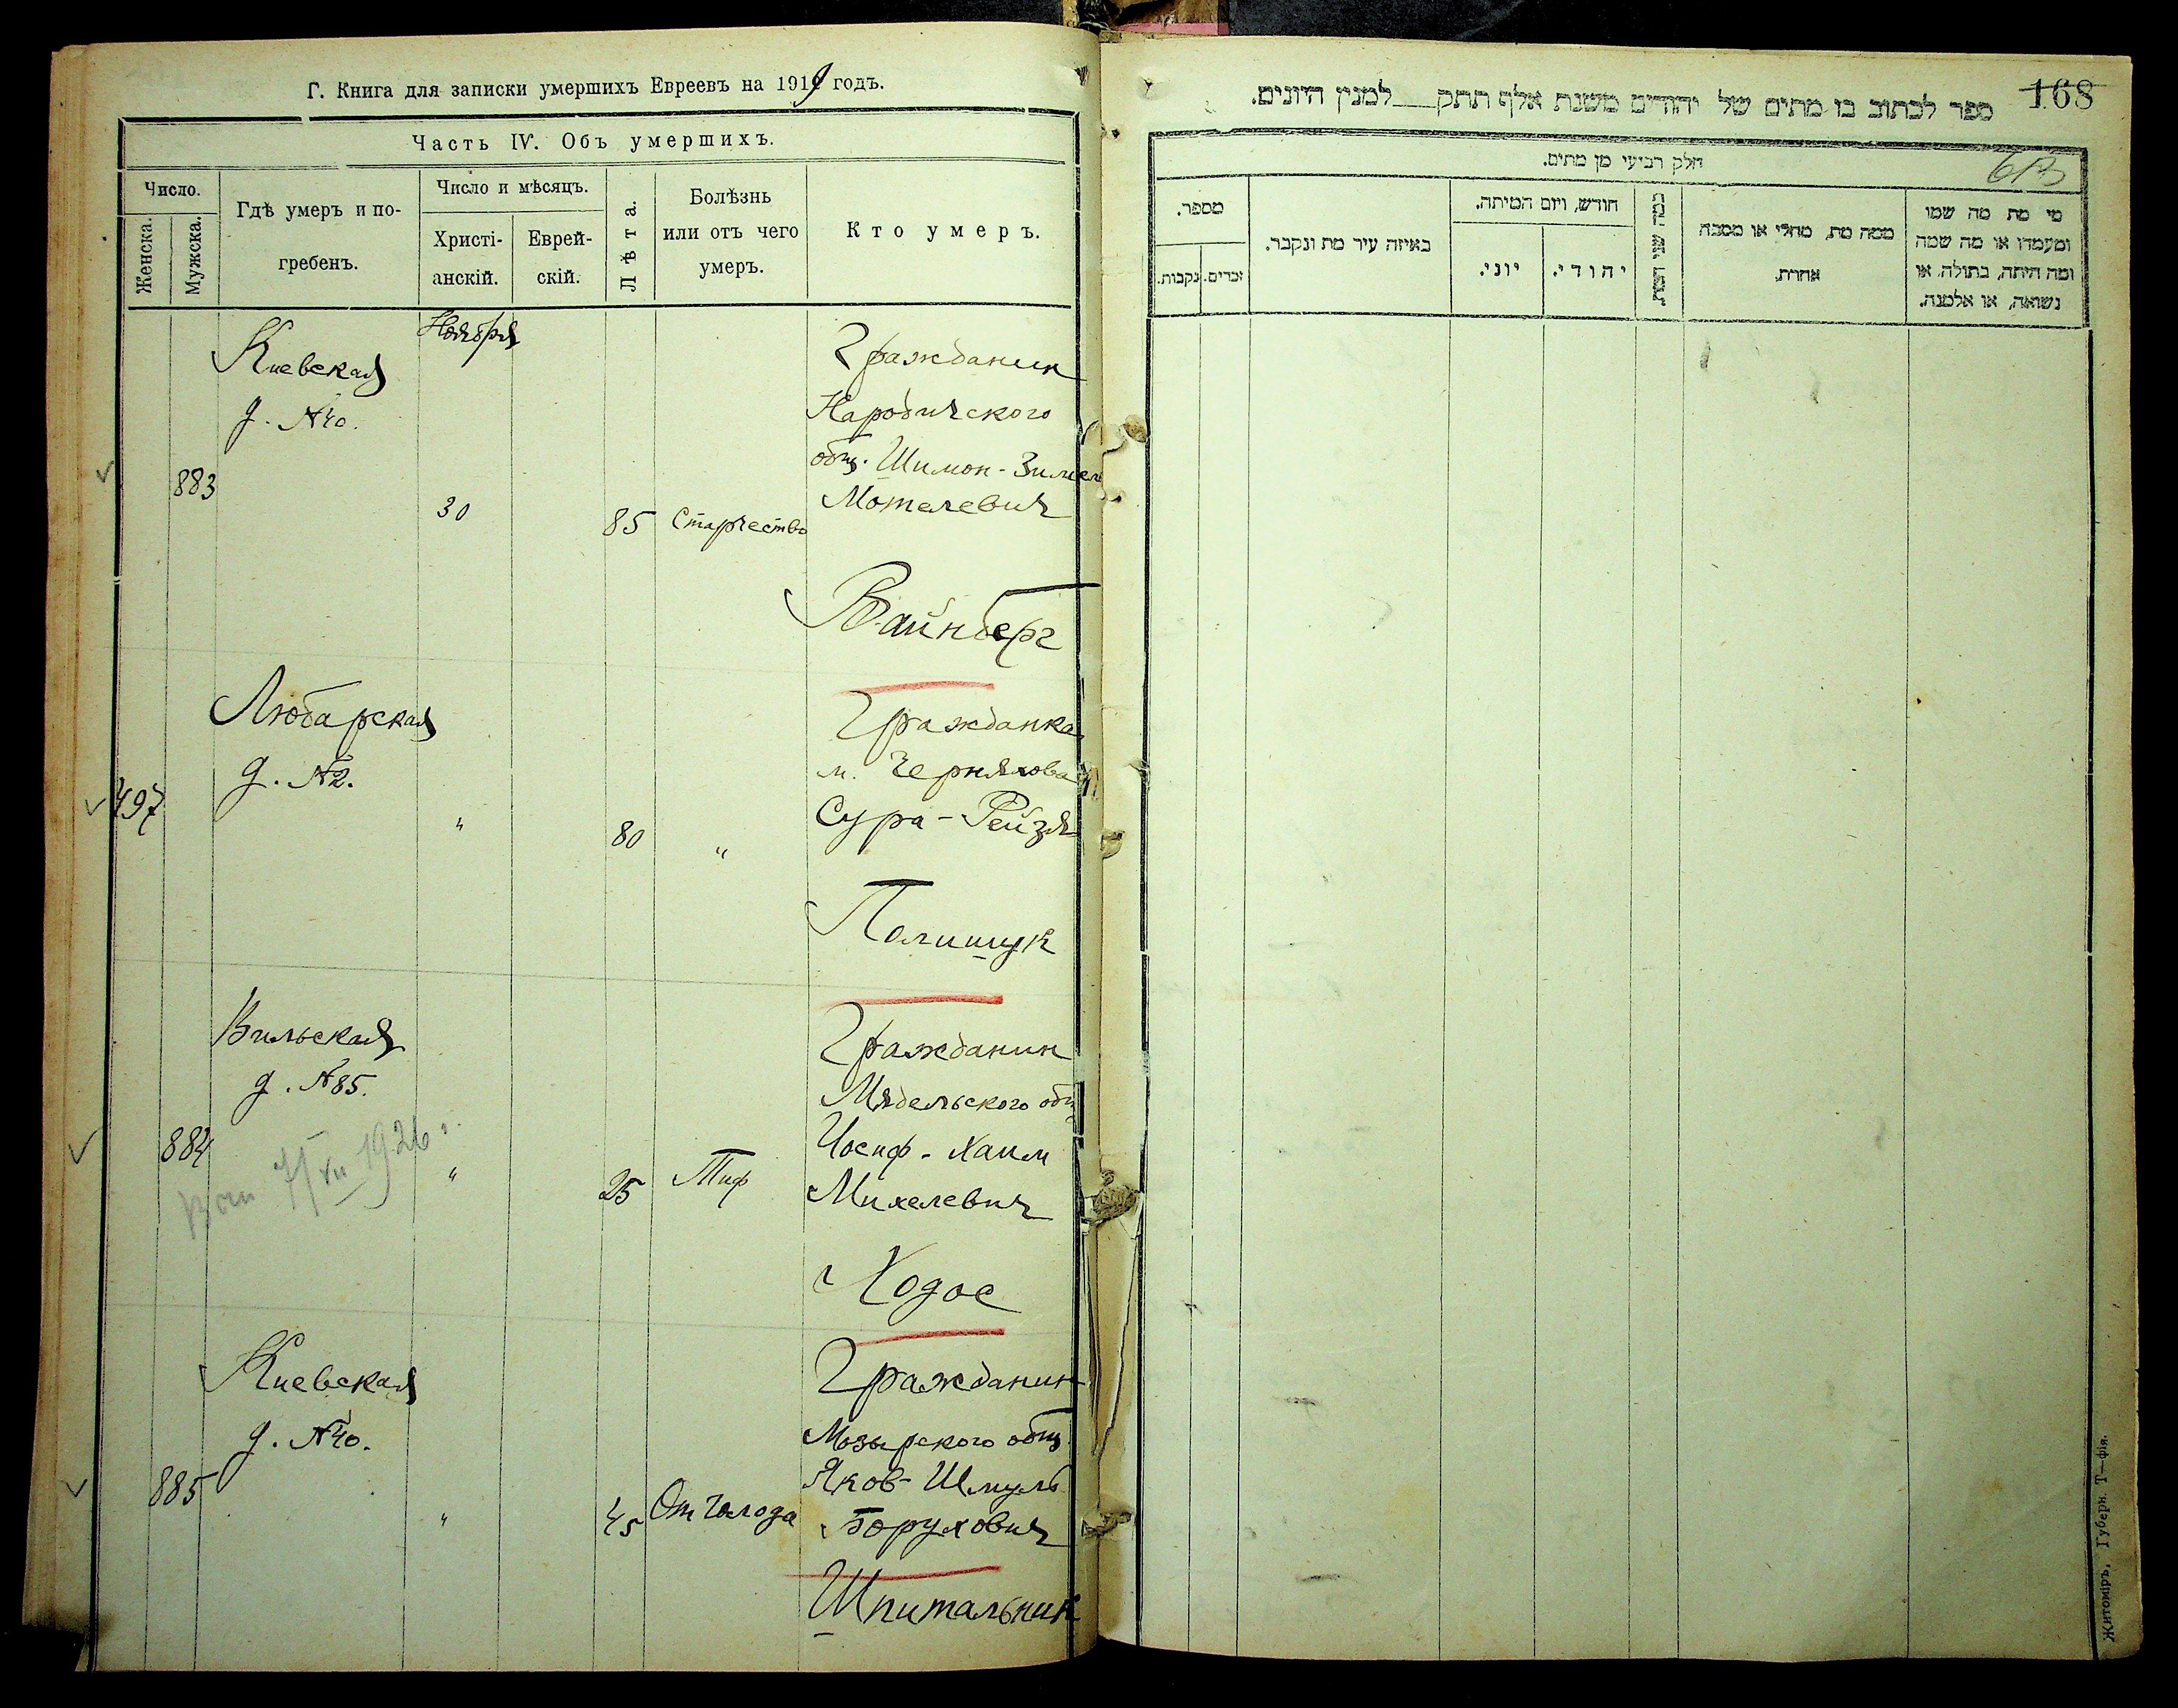 Г. Книга для записки умершихъ Евреевъ на 1919 годъ.
Часть IV. Объ умершихъ.
Число.
Женска.
Мужска.
Гдѣ умеръ и по-
гребенъ.
Число и мѣсяцъ.
Христі-
анскій.
Еврей-
скій.
Лѣта.
Болѣзнь
или отъ чего
умеръ.
Кто умеръ.
Ноября
Киевская
д. №40.
883
30
85
Старчество
Гражданин
Народичского
общ. Шимон-Зимел
Мотелевич
Вайнберг
497
Любарская
д. №2.
"
80
"
Гражданка
м. Черняхова
Сура-Рейзя
Полищук
884
Вильская
д. №85.
7/XII 1926 г.
"
25
Тиф
Гражданин
Мядельского общ
Иосиф-Хаим
Михелевич
Ходос
885
Киевская
д. №40.
"
45
От голода
Гражданин
Мозырского общ.
Яков-Шмуль
Борухович
Шпитальник
168
ספר לכתוב בו מתים של יהודים משנת אלף תתק למנין היונים.
חלק רביעי מן מתים.
מי מת מה שמו
ומעמדו או מה שמה
ומה היתה, בתולה, או
נשואה, או אלמנה.
ממה מת, מחלי או מסבה
אחרת.
כמה שני המת.
חודש, ויום המיתה.
יהודי.
יוני.
באיזה עיר מת ונקבר.
מספר.
זכרים.
נקבות.
Житоміръ, Губерн. Т—фія.